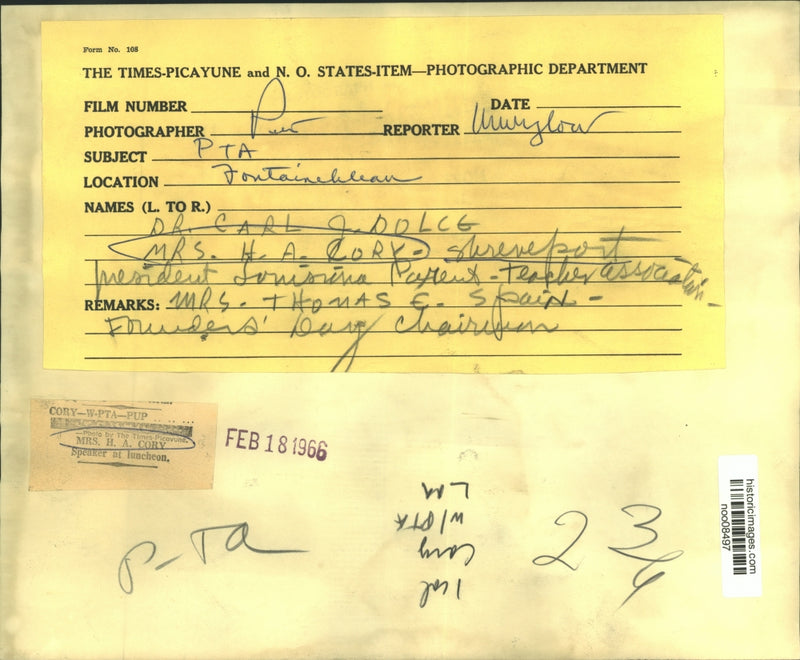 Form No. 108
THE TIMES-PICAYUNE and N. O. STATES-ITEM—PHOTOGRAPHIC DEPARTMENT
FILM NUMBER
DATE
PHOTOGRAPHER
REPORTER
SUBJECT PTA
LOCATION Fontainebleau
NAMES (L. TO R.)
DR. CARL J. DOLCE
MRS. H. A. CORY - Shreveport
president Louisiana Parent-Teacher Association -
REMARKS: MRS. THOMAS E. Spain -
Founders' Day Chairman
CORY—W-PTA—PUP
—Photo by The Times-Picayune.
MRS. H. A. CORY
Speaker at luncheon.
FEB 18 1966
P-TA
1 col
Cory
w/PTA
2 3/4
historicimages.com
noo08497